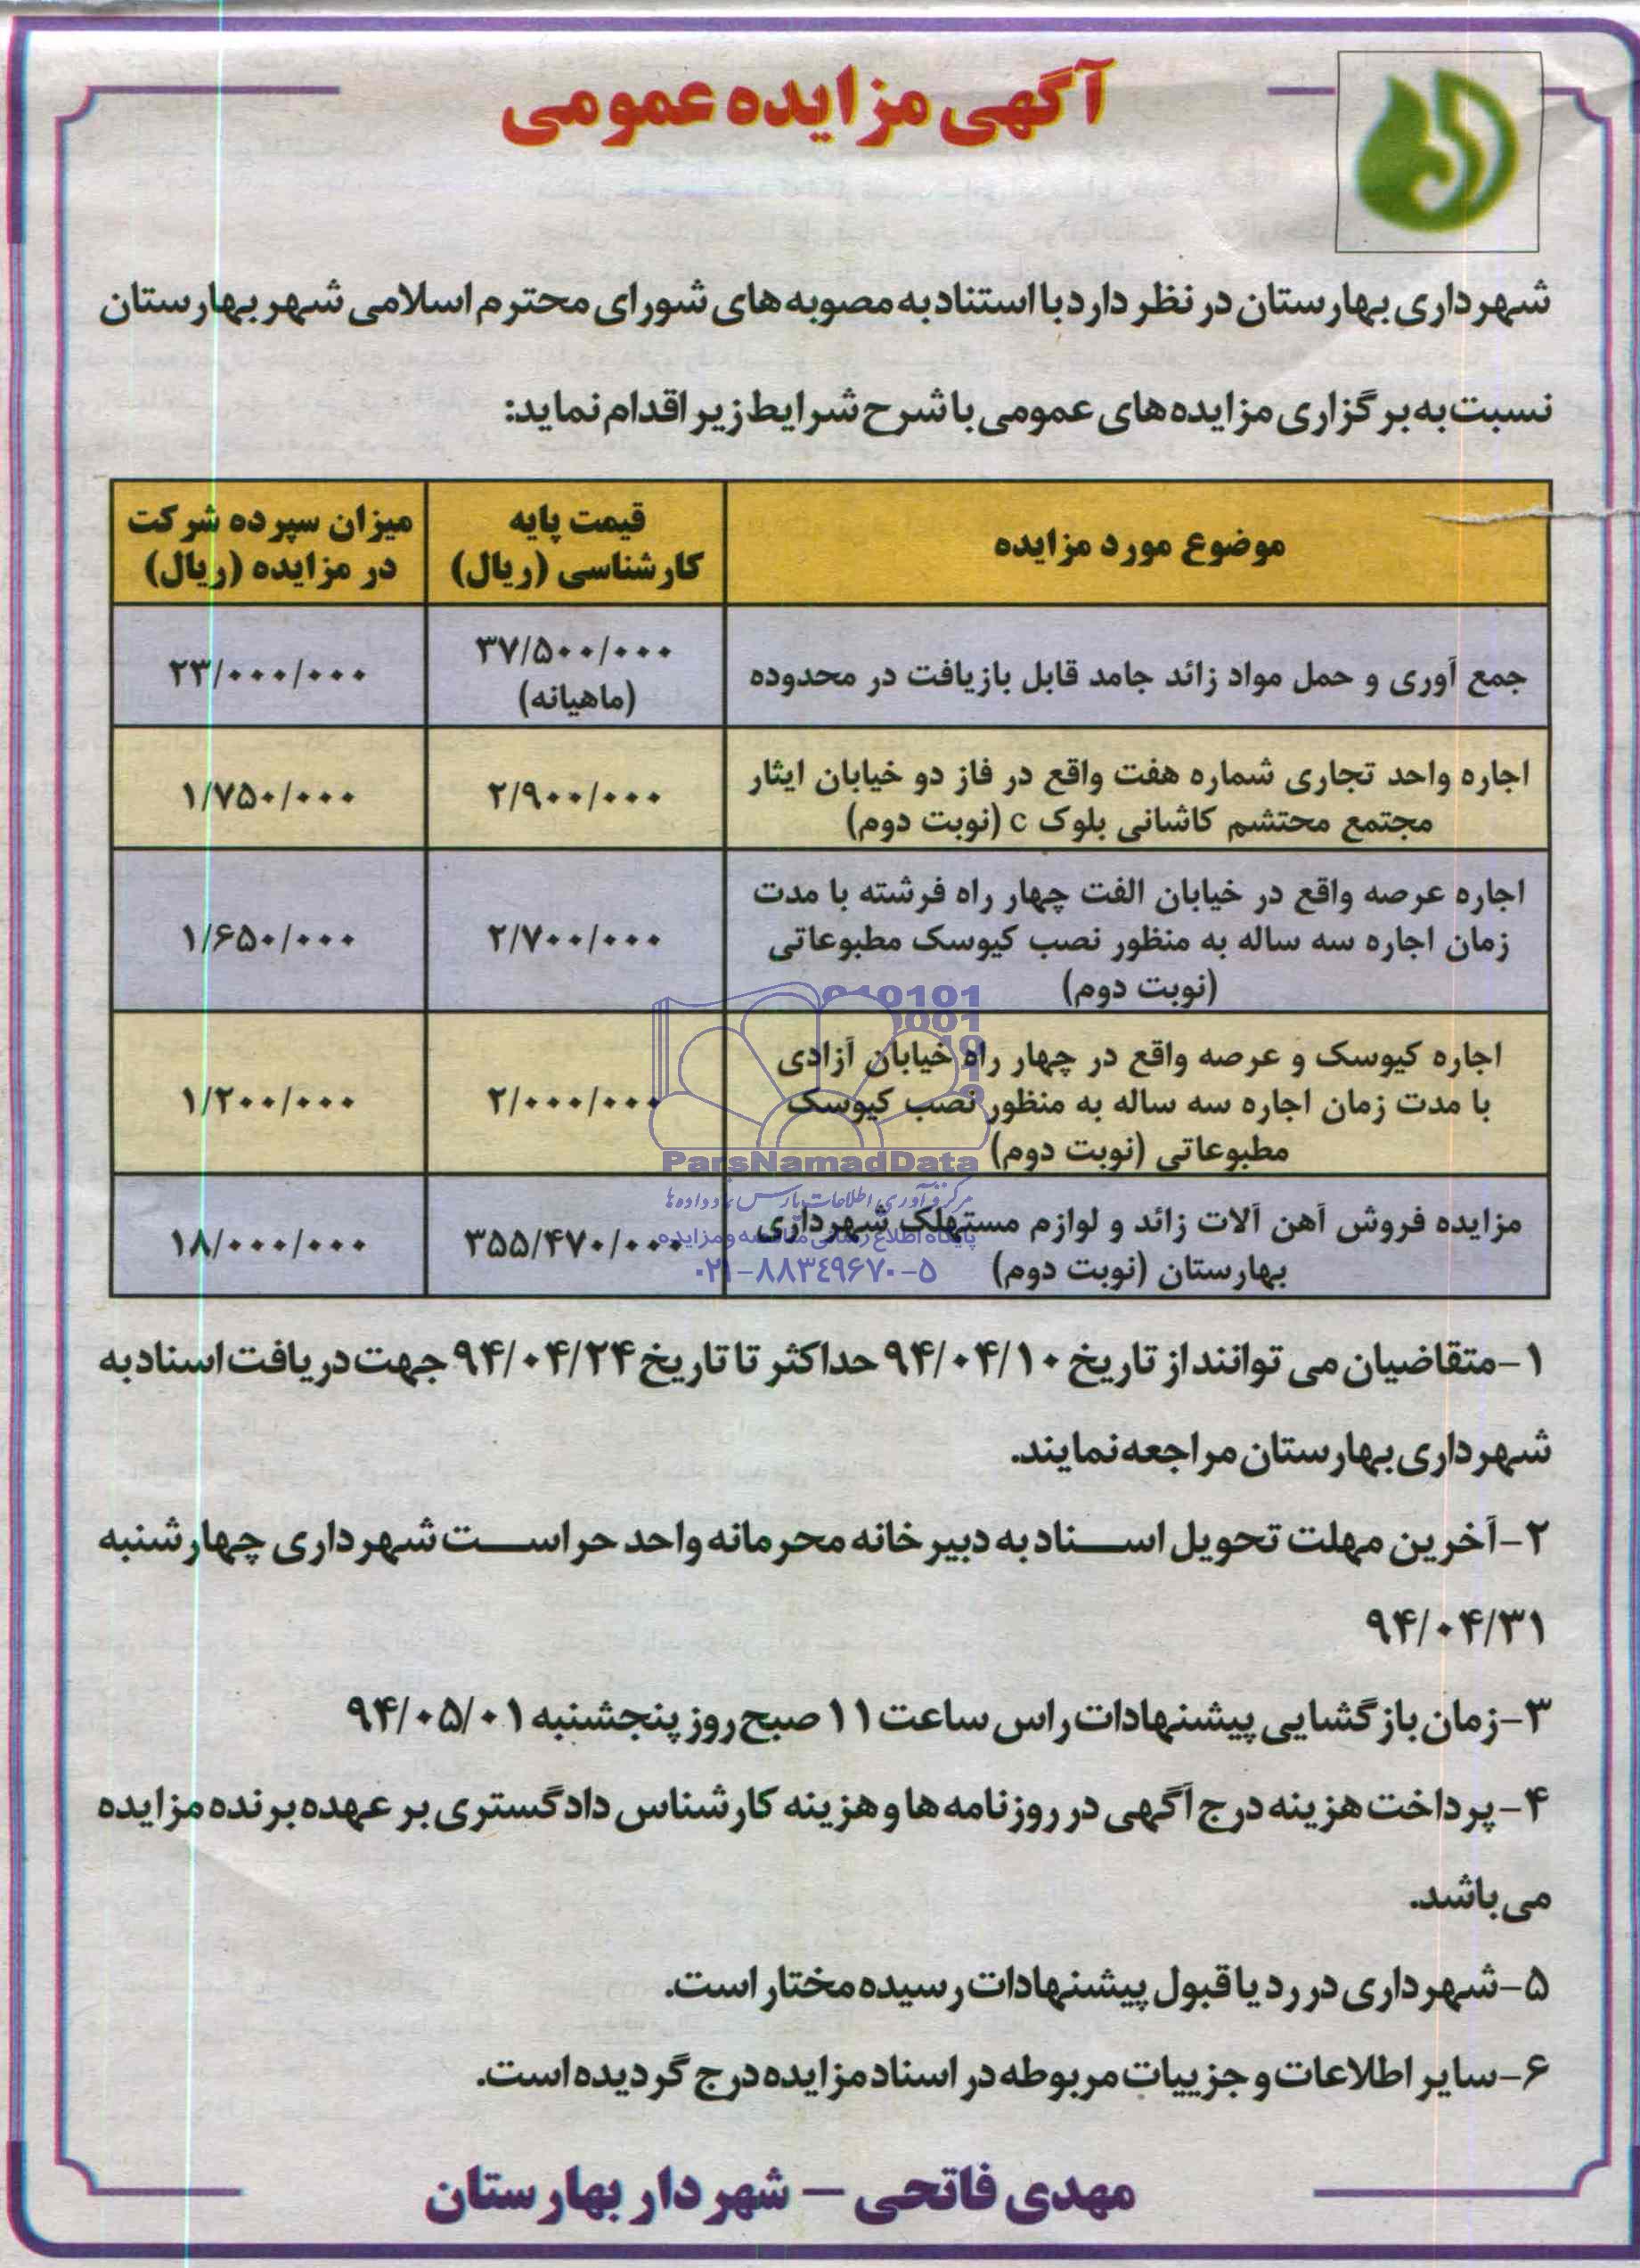 آگهی مزایده عمومی
شهرداری بهارستان در نظر دارد با استناد به مصوبه های شورای محترم اسلامی شهر بهارستان
نسبت به برگزاری مزایده های عمومی با شرح شرایط زیر اقدام نماید:
موضوع مورد مزایده
قیمت پایه
کارشناسی (ریال)
میزان سپرده شرکت
در مزایده (ریال)
جمع آوری و حمل مواد زائد جامد قابل بازیافت در محدوده
۳۷/۵۰۰/۰۰۰
(ماهیانه)
۲۳/۰۰۰/۰۰۰
اجاره واحد تجاری شماره هفت واقع در فاز دو خیابان ایثار
مجتمع محتشم کاشانی بلوک c (نوبت دوم)
۲/۹۰۰/۰۰۰
۱/۷۵۰/۰۰۰
اجاره عرصه واقع در خیابان الفت چهار راه فرشته با مدت
زمان اجاره سه ساله به منظور نصب کیوسک مطبوعاتی
(نوبت دوم)
۲/۷۰۰/۰۰۰
۱/۶۵۰/۰۰۰
اجاره کیوسک و عرصه واقع در چهار راه خیابان آزادی
با مدت زمان اجاره سه ساله به منظور نصب کیوسک
مطبوعاتی (نوبت دوم)
۲/۰۰۰/۰۰۰
۱/۲۰۰/۰۰۰
مزایده فروش آهن آلات زائد و لوازم مستهلک شهرداری
بهارستان (نوبت دوم)
۳۵۵/۴۷۰/۰۰۰
۱۸/۰۰۰/۰۰۰
ParsNamadData
مرکز فرآوری اطلاعات پارس نماد داده ها
پایگاه اطلاع رسانی مناقصه و مزایده
۰۲۱-۸۸۳۴۹۶۷۰-۵
۱-متقاضیان می توانند از تاریخ ۹۴/۰۴/۱۰ حداکثر تا تاریخ ۹۴/۰۴/۲۴ جهت دریافت اسناد به
شهرداری بهارستان مراجعه نمایند.
۲-آخرین مهلت تحویل اسناد به دبیرخانه محرمانه واحد حراست شهرداری چهارشنبه
۹۴/۰۴/۳۱
۳-زمان بازگشایی پیشنهادات راس ساعت ۱۱ صبح روز پنجشنبه ۹۴/۰۵/۰۱
۴-پرداخت هزینه درج آگهی در روزنامه ها و هزینه کارشناس دادگستری بر عهده برنده مزایده
می باشد.
۵-شهرداری در رد یا قبول پیشنهادات رسیده مختار است.
۶-سایر اطلاعات و جزییات مربوطه در اسناد مزایده درج گردیده است.
مهدی فاتحی – شهردار بهارستان